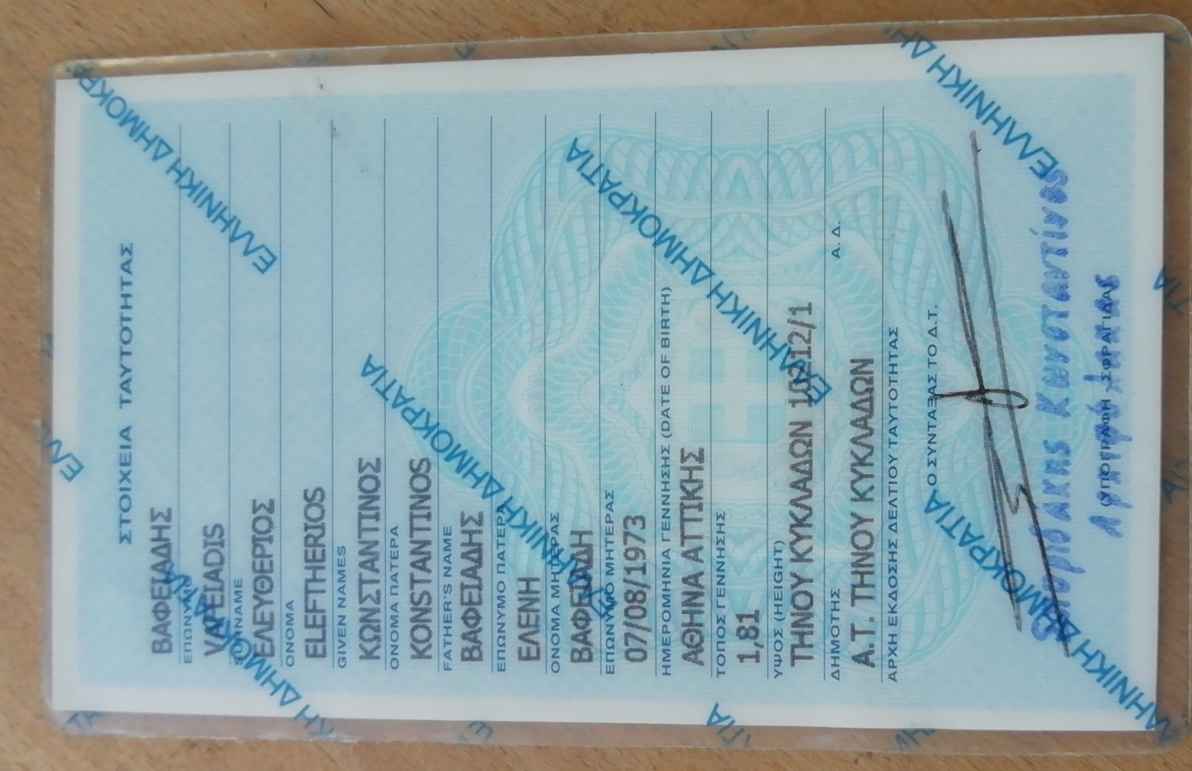 ΣΤΟΙΧΕΙΑ ΤΑΥΤΟΤΗΤΑΣ
ΒΑΦΕΙΑΔΗΣ
ΕΠΩΝΥΜΟ
VAFEIADIS
SURNAME
ΕΛΕΥΘΕΡΙΟΣ
ΟΝΟΜΑ
ELEFTHERIOS
GIVEN NAMES
ΚΩΝΣΤΑΝΤΙΝΟΣ
ΟΝΟΜΑ ΠΑΤΕΡΑ
KONSTANTINOS
FATHER'S NAME
ΒΑΦΕΙΑΔΗΣ
ΕΠΩΝΥΜΟ ΠΑΤΕΡΑ
ΕΛΕΝΗ
ΟΝΟΜΑ ΜΗΤΕΡΑΣ
ΒΑΦΕΙΑΔΗ
ΕΠΩΝΥΜΟ ΜΗΤΕΡΑΣ
07/08/1973
ΗΜΕΡΟΜΗΝΙΑ ΓΕΝΝΗΣΗΣ (DATE OF BIRTH)
ΑΘΗΝΑ ΑΤΤΙΚΗΣ
ΤΟΠΟΣ ΓΕΝΝΗΣΗΣ
1,81
ΥΨΟΣ (HEIGHT)
ΤΗΝΟΥ ΚΥΚΛΑΔΩΝ
ΔΗΜΟΤΗΣ Α. Δ.
Α.Τ. ΤΗΝΟΥ ΚΥΚΛΑΔΩΝ
ΑΡΧΗ ΕΚΔΟΣΗΣ ΔΕΛΤΙΟΥ ΤΑΥΤΟΤΗΤΑΣ
Ο ΣΥΝΤΑΞΑΣ ΤΟ Δ.Τ.
Κωνσταντίνος
ΕΛΛΗΝΙΚΗ ΔΗΜΟΚΡΑΤΙΑ
ΕΛΛΗΝΙΚΗ ΔΗΜΟΚΡΑΤΙΑ
ΕΛΛΗΝΙΚΗ ΔΗΜΟΚΡΑΤΙΑ